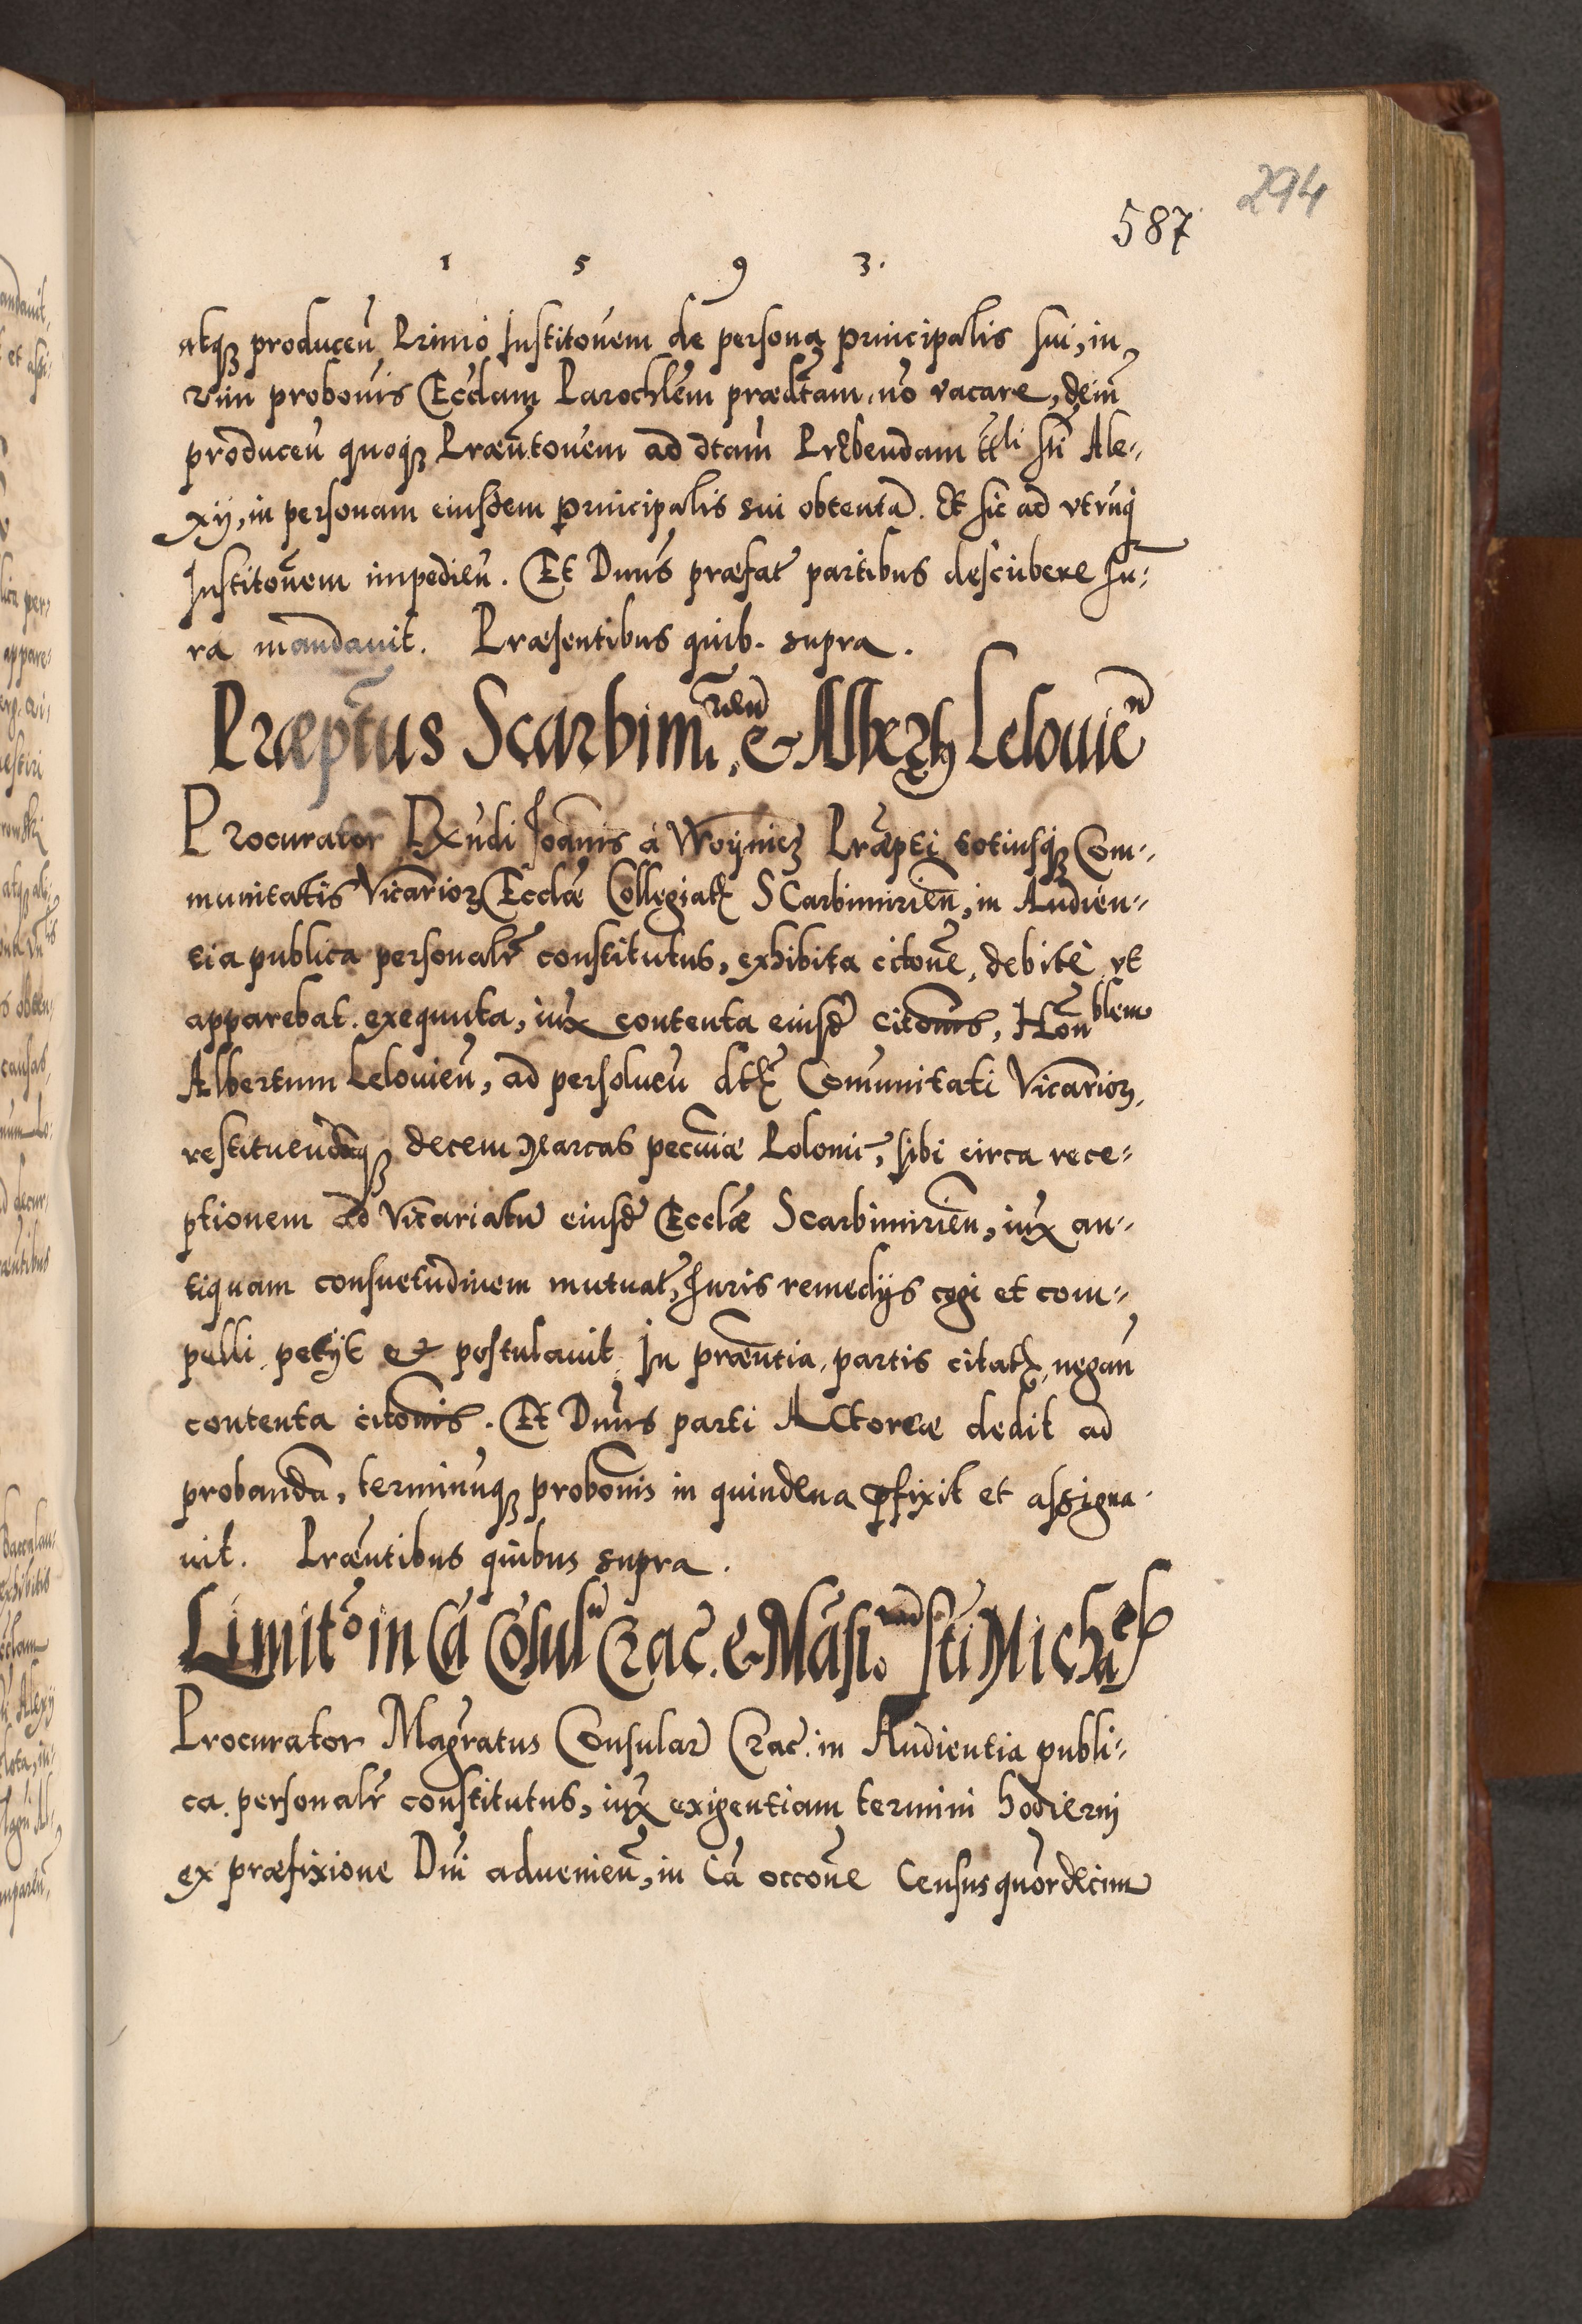 294
587
1 5 9 3.
atqȝ produceń Primo Institoñem de persona principalis sui, in
vim proboñis Ecclam Parochlem prædtam, nō vacare, dein
produceń quoqȝ Præńtoñem ad dtam Præbendam ttli Sti Ale-
xij, in personam eiusdem principalis sui obtentã. Et sic ad vtruq
Institoñem impedień. Et Dnus præfat partibus describere Iu-
ra mandauit. Præsentibus quib. supra.
Præptus Scarbimrien. et Albertj Lelouień
Procurator Rndi Joannis à Woynicz Præpti totiusqȝ Com-
munitatis Vicarior Ecclæ Collegiatæ SCarbimirień, in Audien-
tia publica personalr constitutus, exhibita citoñe, debitè vt
apparebat exequuta, iux contenta eiusd citoñis, Honblem
Albertum Lelouień, ad persolueń dtæ Comunitati Vicarior,
restituendasqȝ decem Marcas pecuniæ Polonic, sibi circa rece-
ptionem ad Vicariatu eiusd Ecclæ Scarbimirień, iux an-
tiquam consuetudinem mutuat, Iuris remedijs cogi et com-
pelli petijt et postulauit. In præntia partis citatæ, negań
contenta citoñis. Et Dnus parti Actoreæ dedit ad
probanda, terminuqȝ proboñis in quindena pfixit et assigna
uit. Præntibus quibus supra.
Limito in Ca Cosul Crac. et Masi. Sti Michael
Procurator Magratus Consular Crac. in Audientia publi-
ca personalr constitutus, iux exigentiam termini hodierni
ex præfixione Dni aduenień, in Ca occoñe Census quordecim